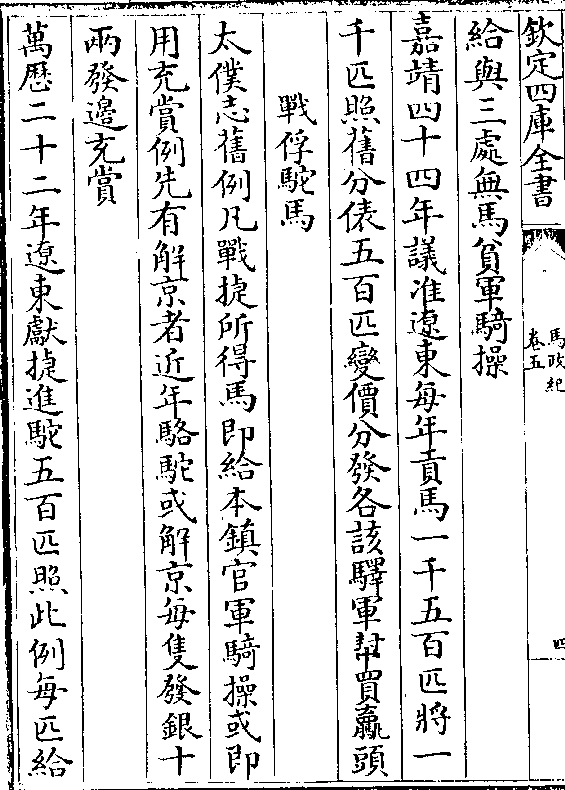 欽定四庫全書
馬政紀
卷五
四
給與三處無馬貧軍騎操
嘉靖四十四年議准遼東每年貢馬一千五百匹將一
千匹照舊分俵五百匹變價分發各該驛軍幫買驘頭
戰俘駝馬
太僕志舊例凡戰捷所得馬即給本鎮官軍騎操或即
用充賞例先有解京者近年駱駝或解京每隻發銀十
兩發邊充賞
萬歷二十二年遼東獻捷進駝五百匹照此例每匹給